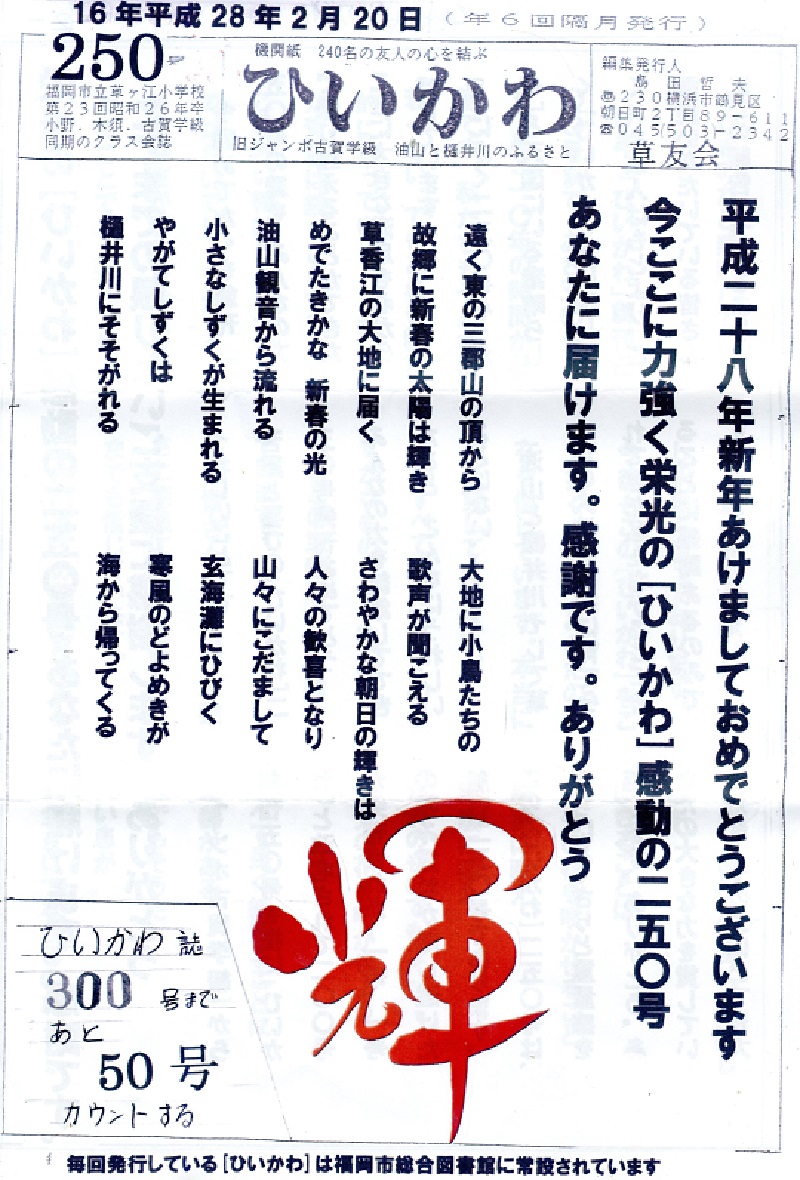 16年平成28年2月20日（年6回隔月発行）
250号
福岡市立草ヶ江小学校
第23回昭和26年卒
小野、木須、古賀学級
同期のクラス会誌
機関紙　240名の友人の心を結ぶ
ひいかわ
旧ジャンボ古賀学級　油山と樋井川のふるさと
編集発行人
島田哲夫
〠230横浜市鶴見区
朝日町2丁目89-611
☎045(503)-2342
草友会
平成二十八年新年あけましておめでとうございます
今ここに力強く栄光の［ひいかわ］感動の二五〇号
あなたに届けます。感謝です。ありがとう
遠く東の三郡山の頂から
故郷に新春の太陽は輝き
草香江の大地に届く
めでたきかな　新春の光
油山観音から流れる
小さなしずくが生まれる
やがてしずくは
樋井川にそそがれる
大地に小鳥たちの
歌声が聞こえる
さわやかな朝日の輝きは
人々の歓喜となり
山々にこだまして
玄海灘にひびく
寒風のどよめきが
海から帰ってくる
輝
ひいかわ誌
300号まで
あと
50号
カウントする
毎回発行している［ひいかわ］は福岡市総合図書館に常設されています